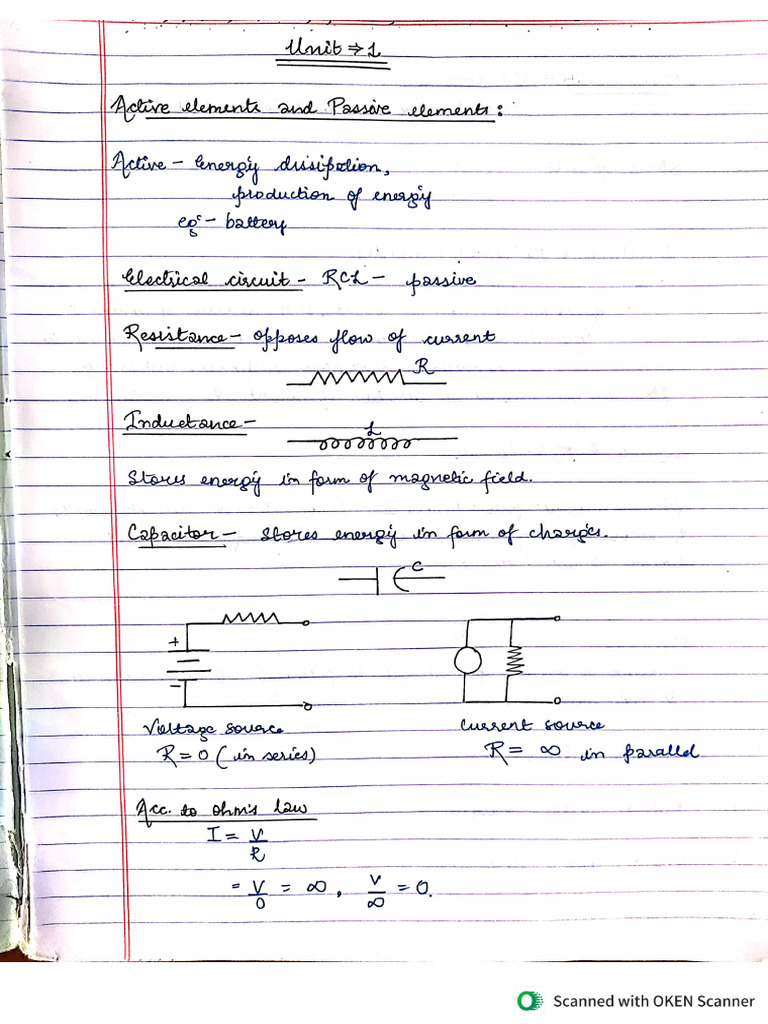 Unit ⇒ 1
Active elements and Passive elements:
Active - Energy dissipation,
production of energy
eg:- battery
Electrical circuit - RCL - passive
Resistance - opposes flow of current
R
Inductance -
L
Stores energy in form of magnetic field.
Capacitor - stores energy in form of charges.
C
+
-
Voltage source
R = 0 (in series)
Current source
R = ∞ in parallel
Acc. to ohm's law
I = V/R
= V/0 = ∞, V/∞ = 0.
Scanned with OKEN Scanner